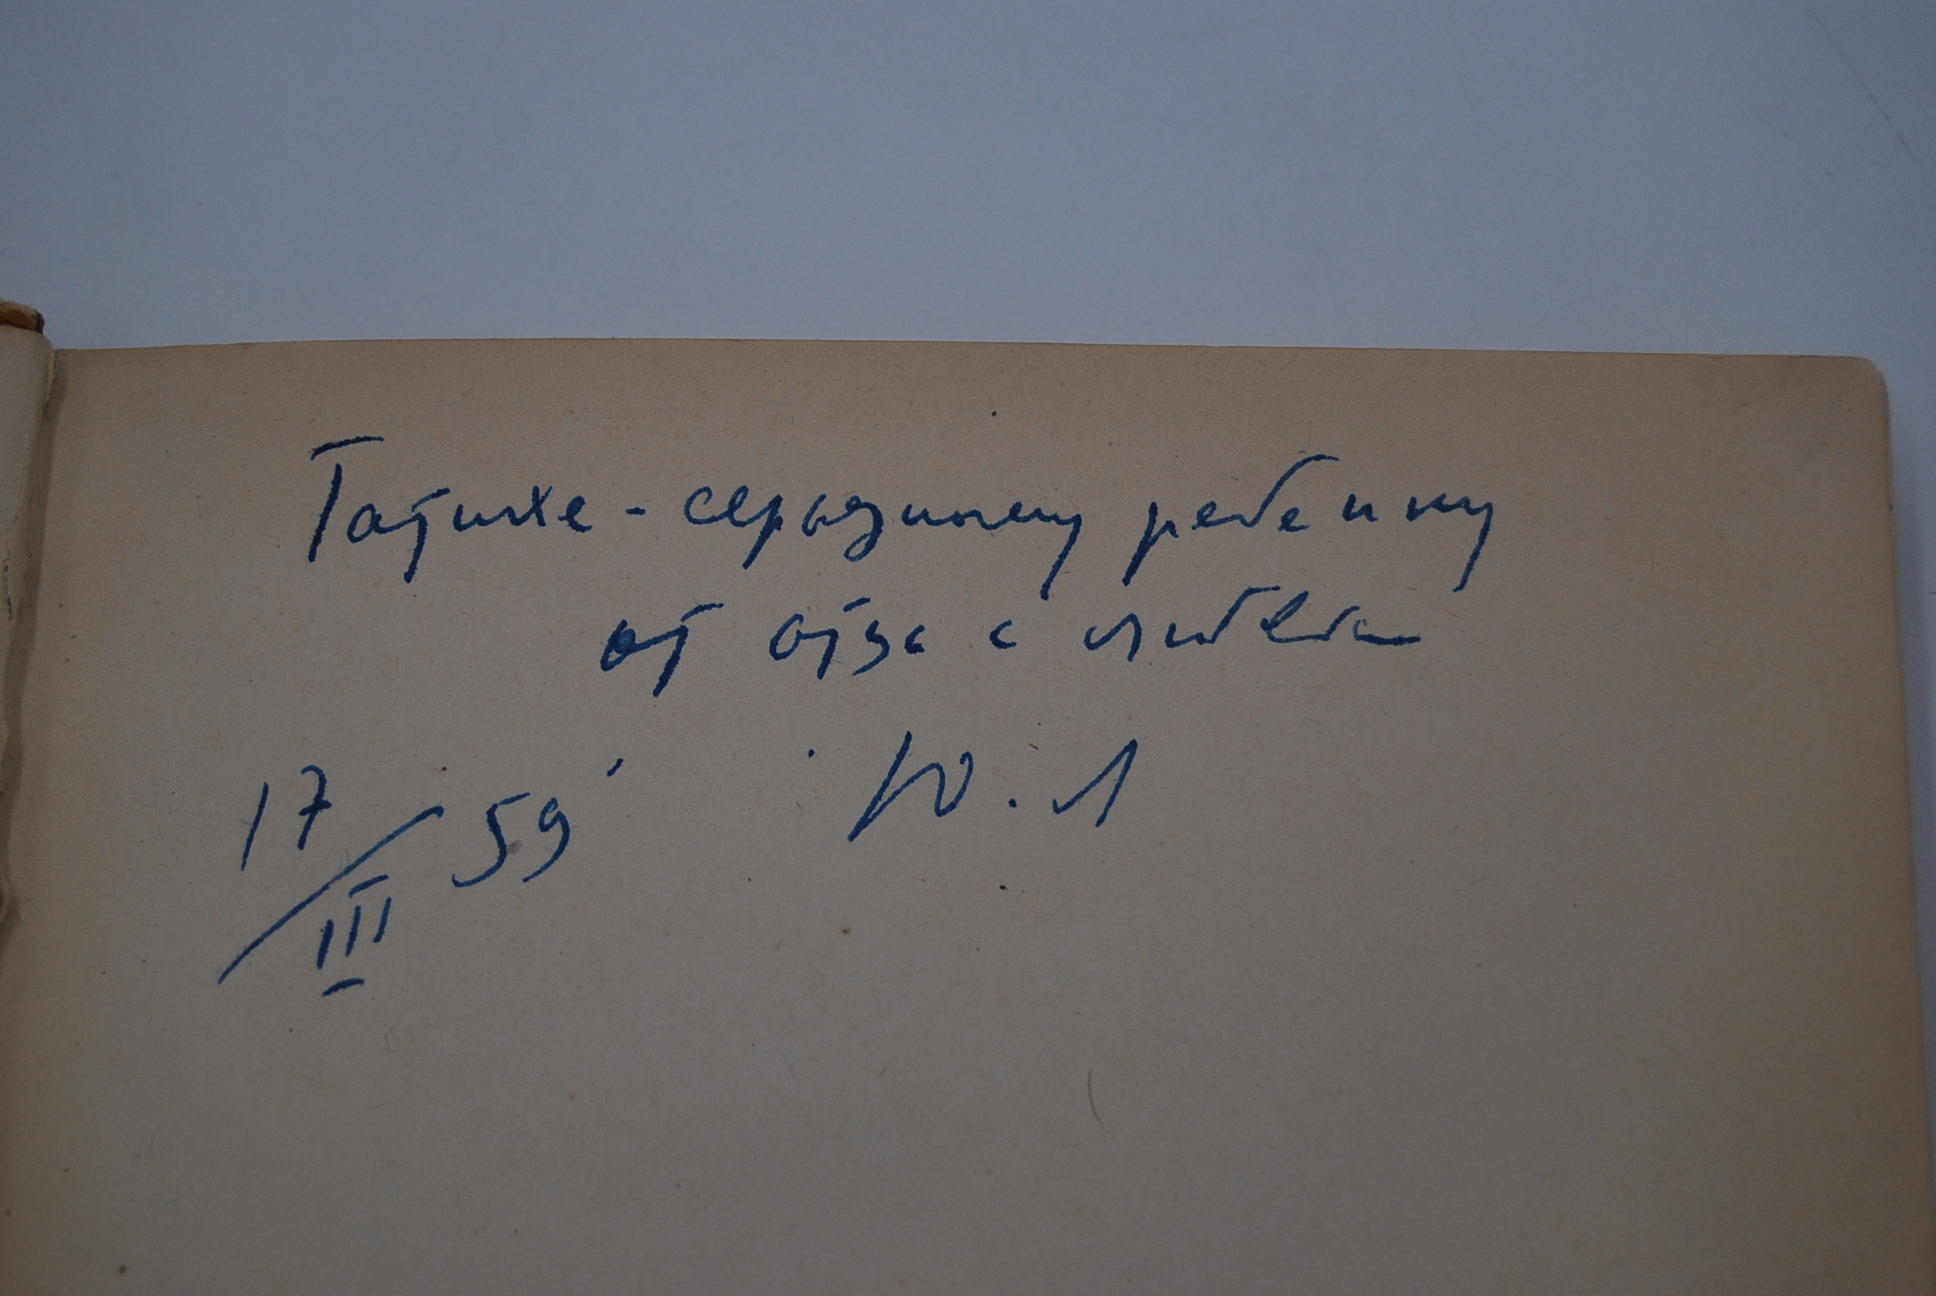 Татихе - серьезному ребенку
от отца с любовью
Ю. Л
17/III 59